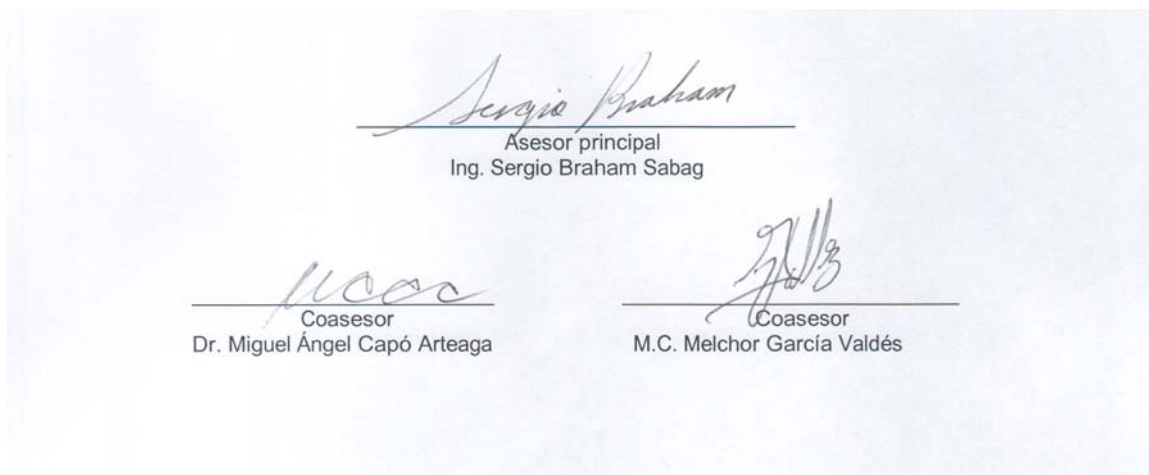 Sergio Braham
Asesor principal
Ing. Sergio Braham Sabag
Coasesor
Dr. Miguel Ángel Capó Arteaga
Coasesor
M.C. Melchor García Valdés